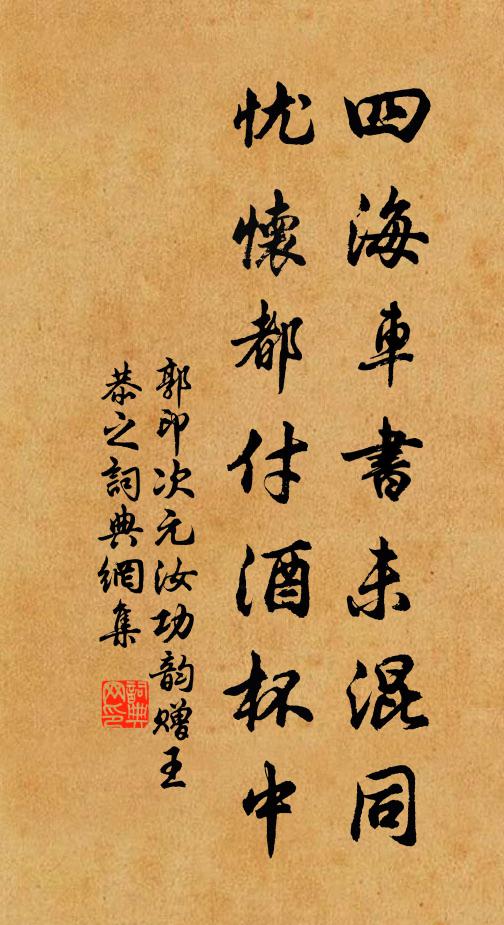 四海車書未混同
忧懷都付酒杯中
郭印次元汝功韵赠王
恭之詞典網集
詞典
网印